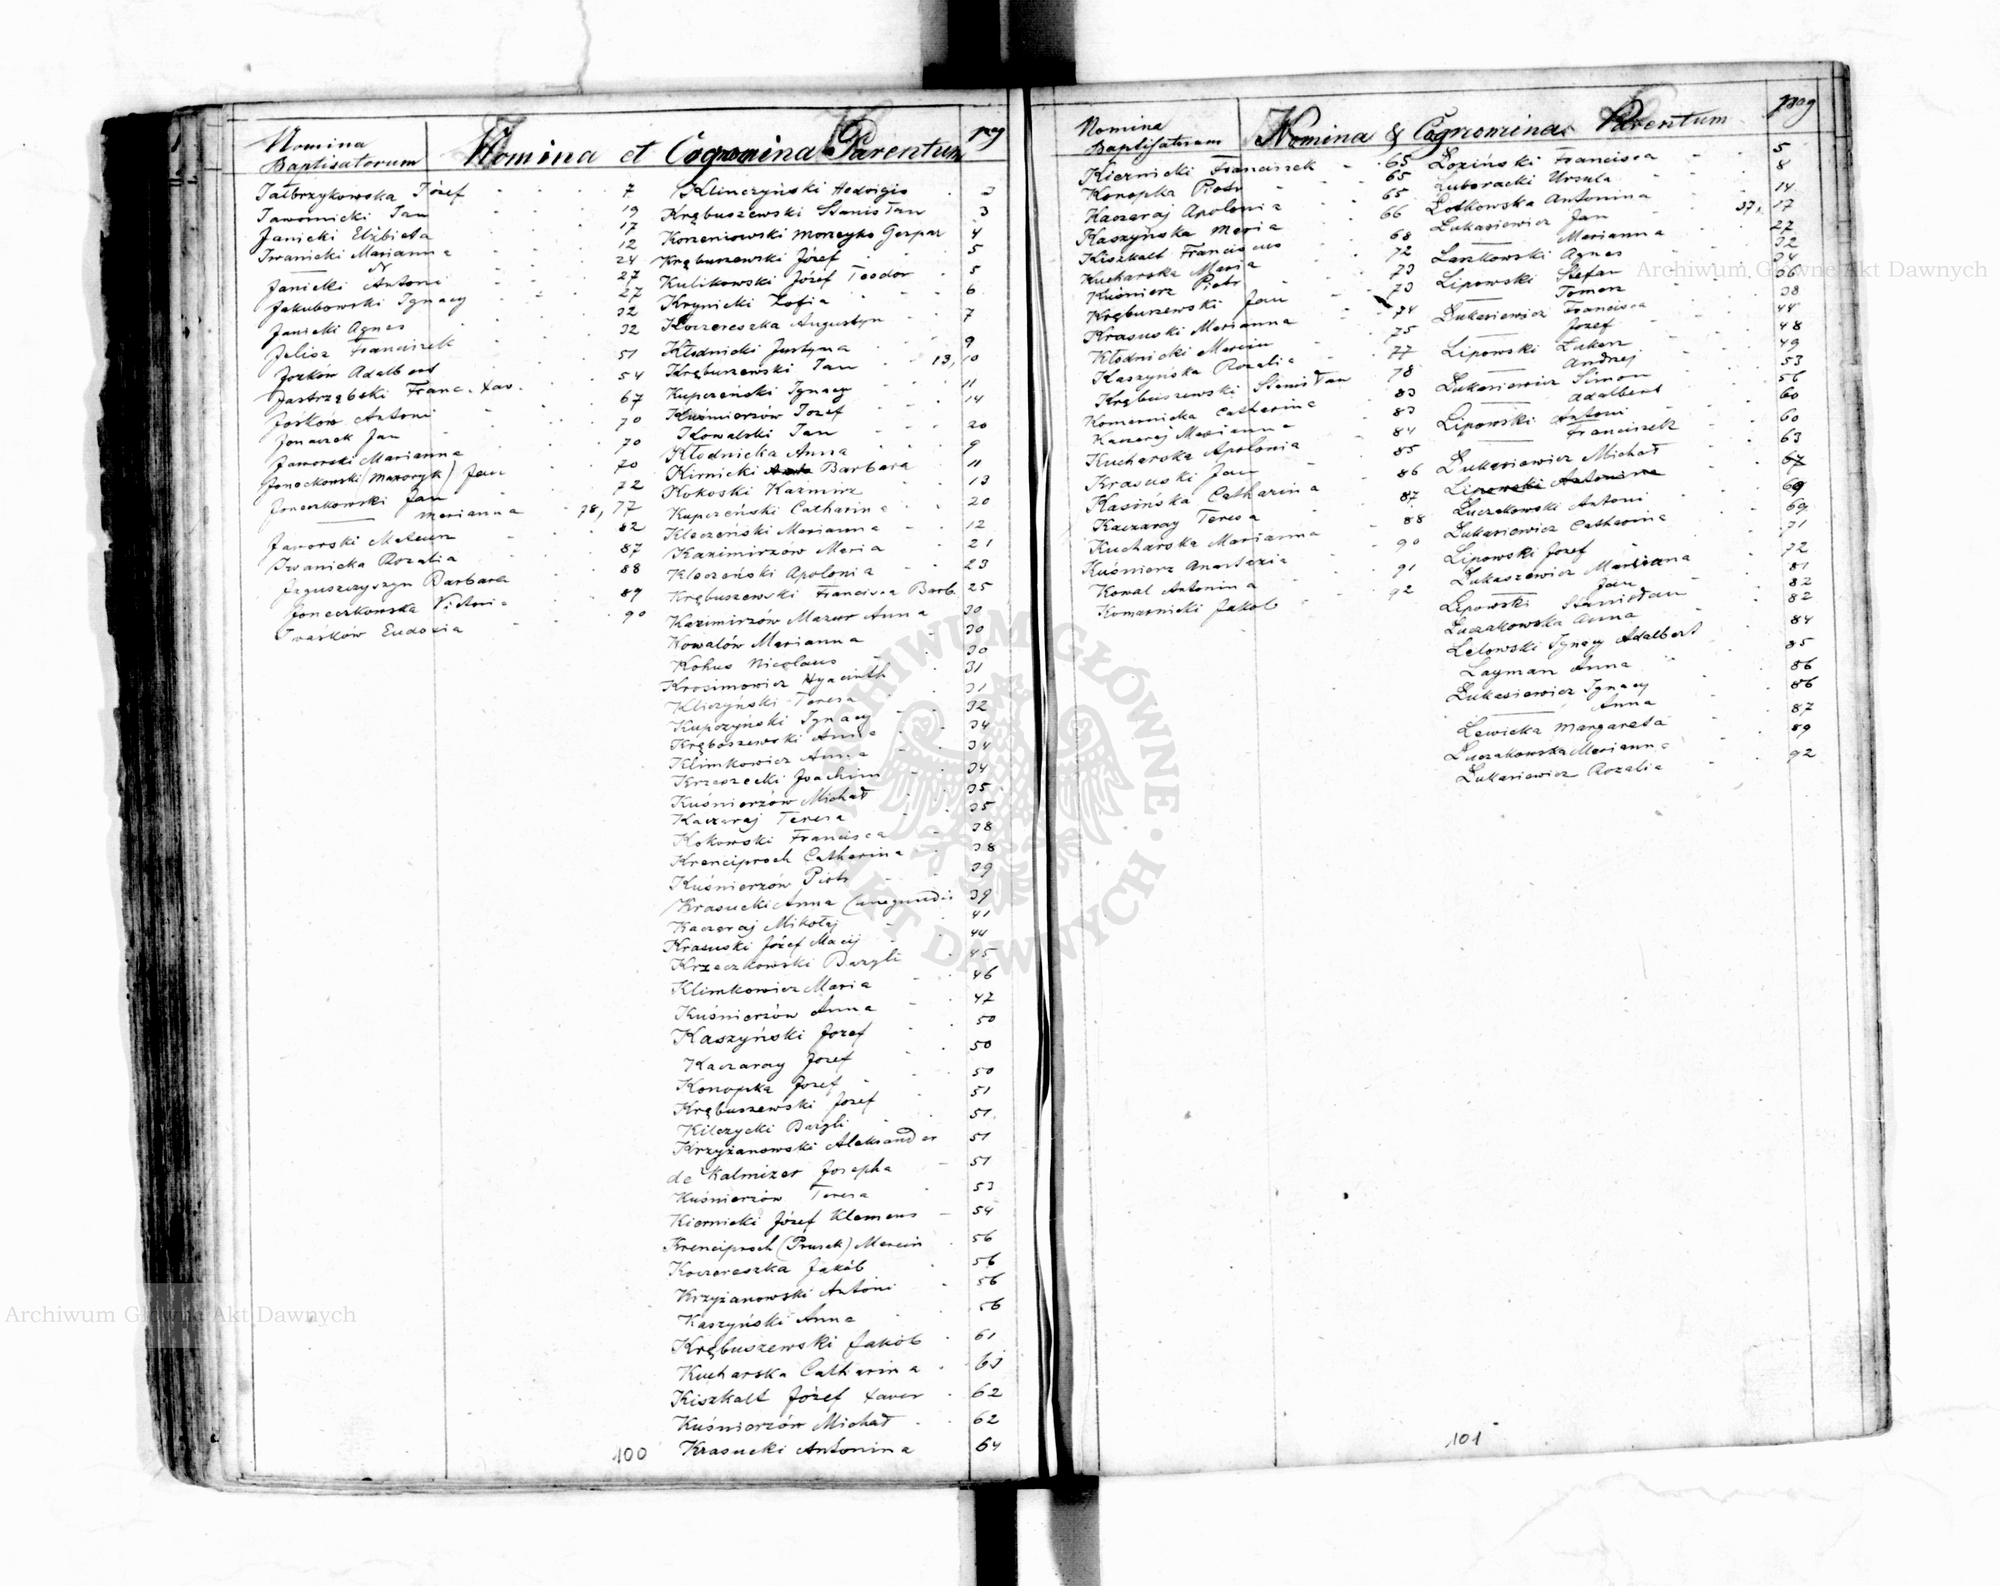 Nomina
Baptisatorum
Nomina et Cognomina Parentum
pag
Jałbrzykowska Józef 7
Jawornicki Jan 19
Janicki Elżbieta 17
Iwanicki Marianna 12
Janicki Antoni 24
Jakubowski Ignacy 27
Janicki Agnes 27
Jelisz Franciszek 32
Joźków Adalbert 32
Jastrzębski Franc. Xav. 51
Jośków Antoni 54
Jonaczek Jan 67
Jaworski Marianna 70
Jonackowski (Mazoryk) Jan 70
Joneczkowski Jan 70
Marianna 72
Jaworski Mateusz 78, 77
Iwanicka Rozalia 82
Jaguszczyszyn Barbara 87
Joneczkowska Victoria 88
Iwasków Eudoxia 89
90
Klinczyński Hedvigis 2
Krębuszewski Stanisław 3
Korzeniowski Maczeyko Gaspar 4
Krębuszewski Józef 5
Kulikowski Józef Teodor 5
Krynicki Zofia 6
Koczereszka Augustyn 7
Kłodnicki Justyna 9
Krębuszewski Jan 13, 10
Kupczeński Ignacy 11
Kuśmierzów Jozef 14
Kowalski Jan 20
Kłodnicka Anna 9
Kirnicki Barbara 11
Kokoski Kazmirz 13
Kupczeński Catharina 20
Kleczeński Marianna 12
Kazimirzow Maria 21
Kleczeński Apolonia 23
Krębuszewski Francisca Barb. 25
Kazimirzów Mazur Anna 30
Kowalów Marianna 30
Kohus Nicolaus 30
Krosimowicz Hyacinth 31
Kliczyński Teresa 31
Kupczyński Ignacy 32
Krębuszewski Anna 34
Klimkowicz Anna 34
Krzeszecki Joachim 34
Kuśnierzów Michał 35
Kaczaraj Teresa 35
Kokowski Francisca 38
Krenciproch Catharina 38
Kuśnierzów Piotr 39
Krasucki Anna Cunegundis 39
Kaczaraj Mikołaj 41
Krasuski Józef Macij 44
Krzeczkowski Bazyli 45
Klimkowicz Maria 46
Kuśnierzów Anna 47
Kaszyński Jozef 50
Kaczaray Jozef 50
Konopka Jozef 50
Krębuszewski Jozef 51
Kilczycki Bazyli 51
Krzyżanowski Aleksander 51
de Kalmizer Josepha 51
Kuśnierzów Teresa 53
Kiernicki Józef Klemens 54
Krenciproch (Prusek) Marcin 56
Koczereszka Jakób 56
Krzyżanowski Antoni 56
Kaszyński Anna 56
Krębuszewski Jakób 61
Kucharska Catharina 61
Kiszkalt Józef Xaver 62
Kuśnierzów Michał 62
Krasucki Antonina 64
100
Nomina
Baptisatorum
Nomina & Cognomina Parentum
pag
Kiernicki Franciszek 65
Konopka Piotr 65
Kaczaraj Apolonia 65
Kaszyńska Maria 66
Kiszkalt Franciscus 68
Kucharska Maria 72
Kuśnierz Piotr 73
Krębuszewski Jan 73
Krasuski Marianna 74
Kłodnicki Marcin 75
Kaszyńska Rozalia 77
Krębuszewski Stanisław 78
Komarnicka Catharina 83
Kaczaraj Marianna 83
Kucharska Apolonia 84
Krasuski Jan 85
Kasińska Catharina 86
Kaczaray Teresa 87
Kucharska Marianna 88
Kuśnierz Anastazia 90
Kowal Antonina 91
Komarnicki Jakob 92
Łoziński Francisca 5
Luboracki Ursula 8
Lotkowska Antonina 14
Łukasiewicz Jan 37, 17
Marianna 27
Laszkowski Agnes 32
Lipowski Stefan 34
Tomasz 36
Łukasiewicz Francisca 38
Jozef 44
Lipowski Łukasz 48
Andrzej 49
Łukasiewicz Simon 53
Adalbert 56
Lipowski Antoni 60
Franciszek 60
Łukasiewicz Michał 63
Lipowski Antonina 67
Łuczakowski Antoni 69
Łukasiewicz Catharina 69
Lipowski Jozef 71
Łukaszewicz Marianna 72
Jan 81
Lipowski Stanisław 82
Łuczakowska Anna 82
Lelowski Ignacy Adalbert 84
Layman Anna 85
Łukasiewicz Ignacy 86
Anna 86
Lewicka Margareta 87
Łuczakowska Marianna 89
Łukasiewicz Rozalia 92
101
Archiwum Główne Akt Dawnych
Archiwum Główne Akt Dawnych
ARCHIWUM GŁÓWNE AKT DAWNYCH